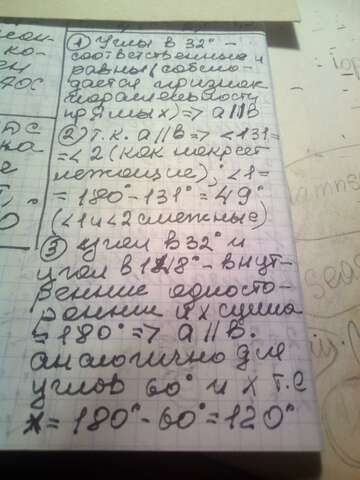 ① Углы в 32° -
соответственные и
равны (соблю-
дается признак
паралельности
прямых) => a||b
② т.к. a||b => <131=
= <2 (как накрест
лежащие), <1=
= 180°-131° = 49°
(<1 и <2 смежные)
③ угол в 32° и
угол в 148° - внут-
ренние односто-
ронние их сумма
= 180° => a||b.
аналогично для
углов 60° и x т.е
x = 180° - 60° = 120°